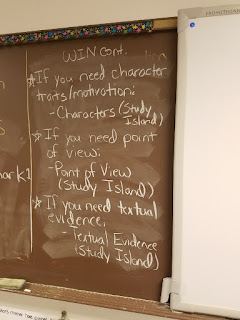 WIN cont.
☆If you need character
traits/motivation:
- Characters (Study
Island)
☆ If you need point
of view:
- Point of View
(Study Island)
☆ If you need textual
evidence:
- Textual Evidence
(Study Island)
ark1
PROMETHEAN